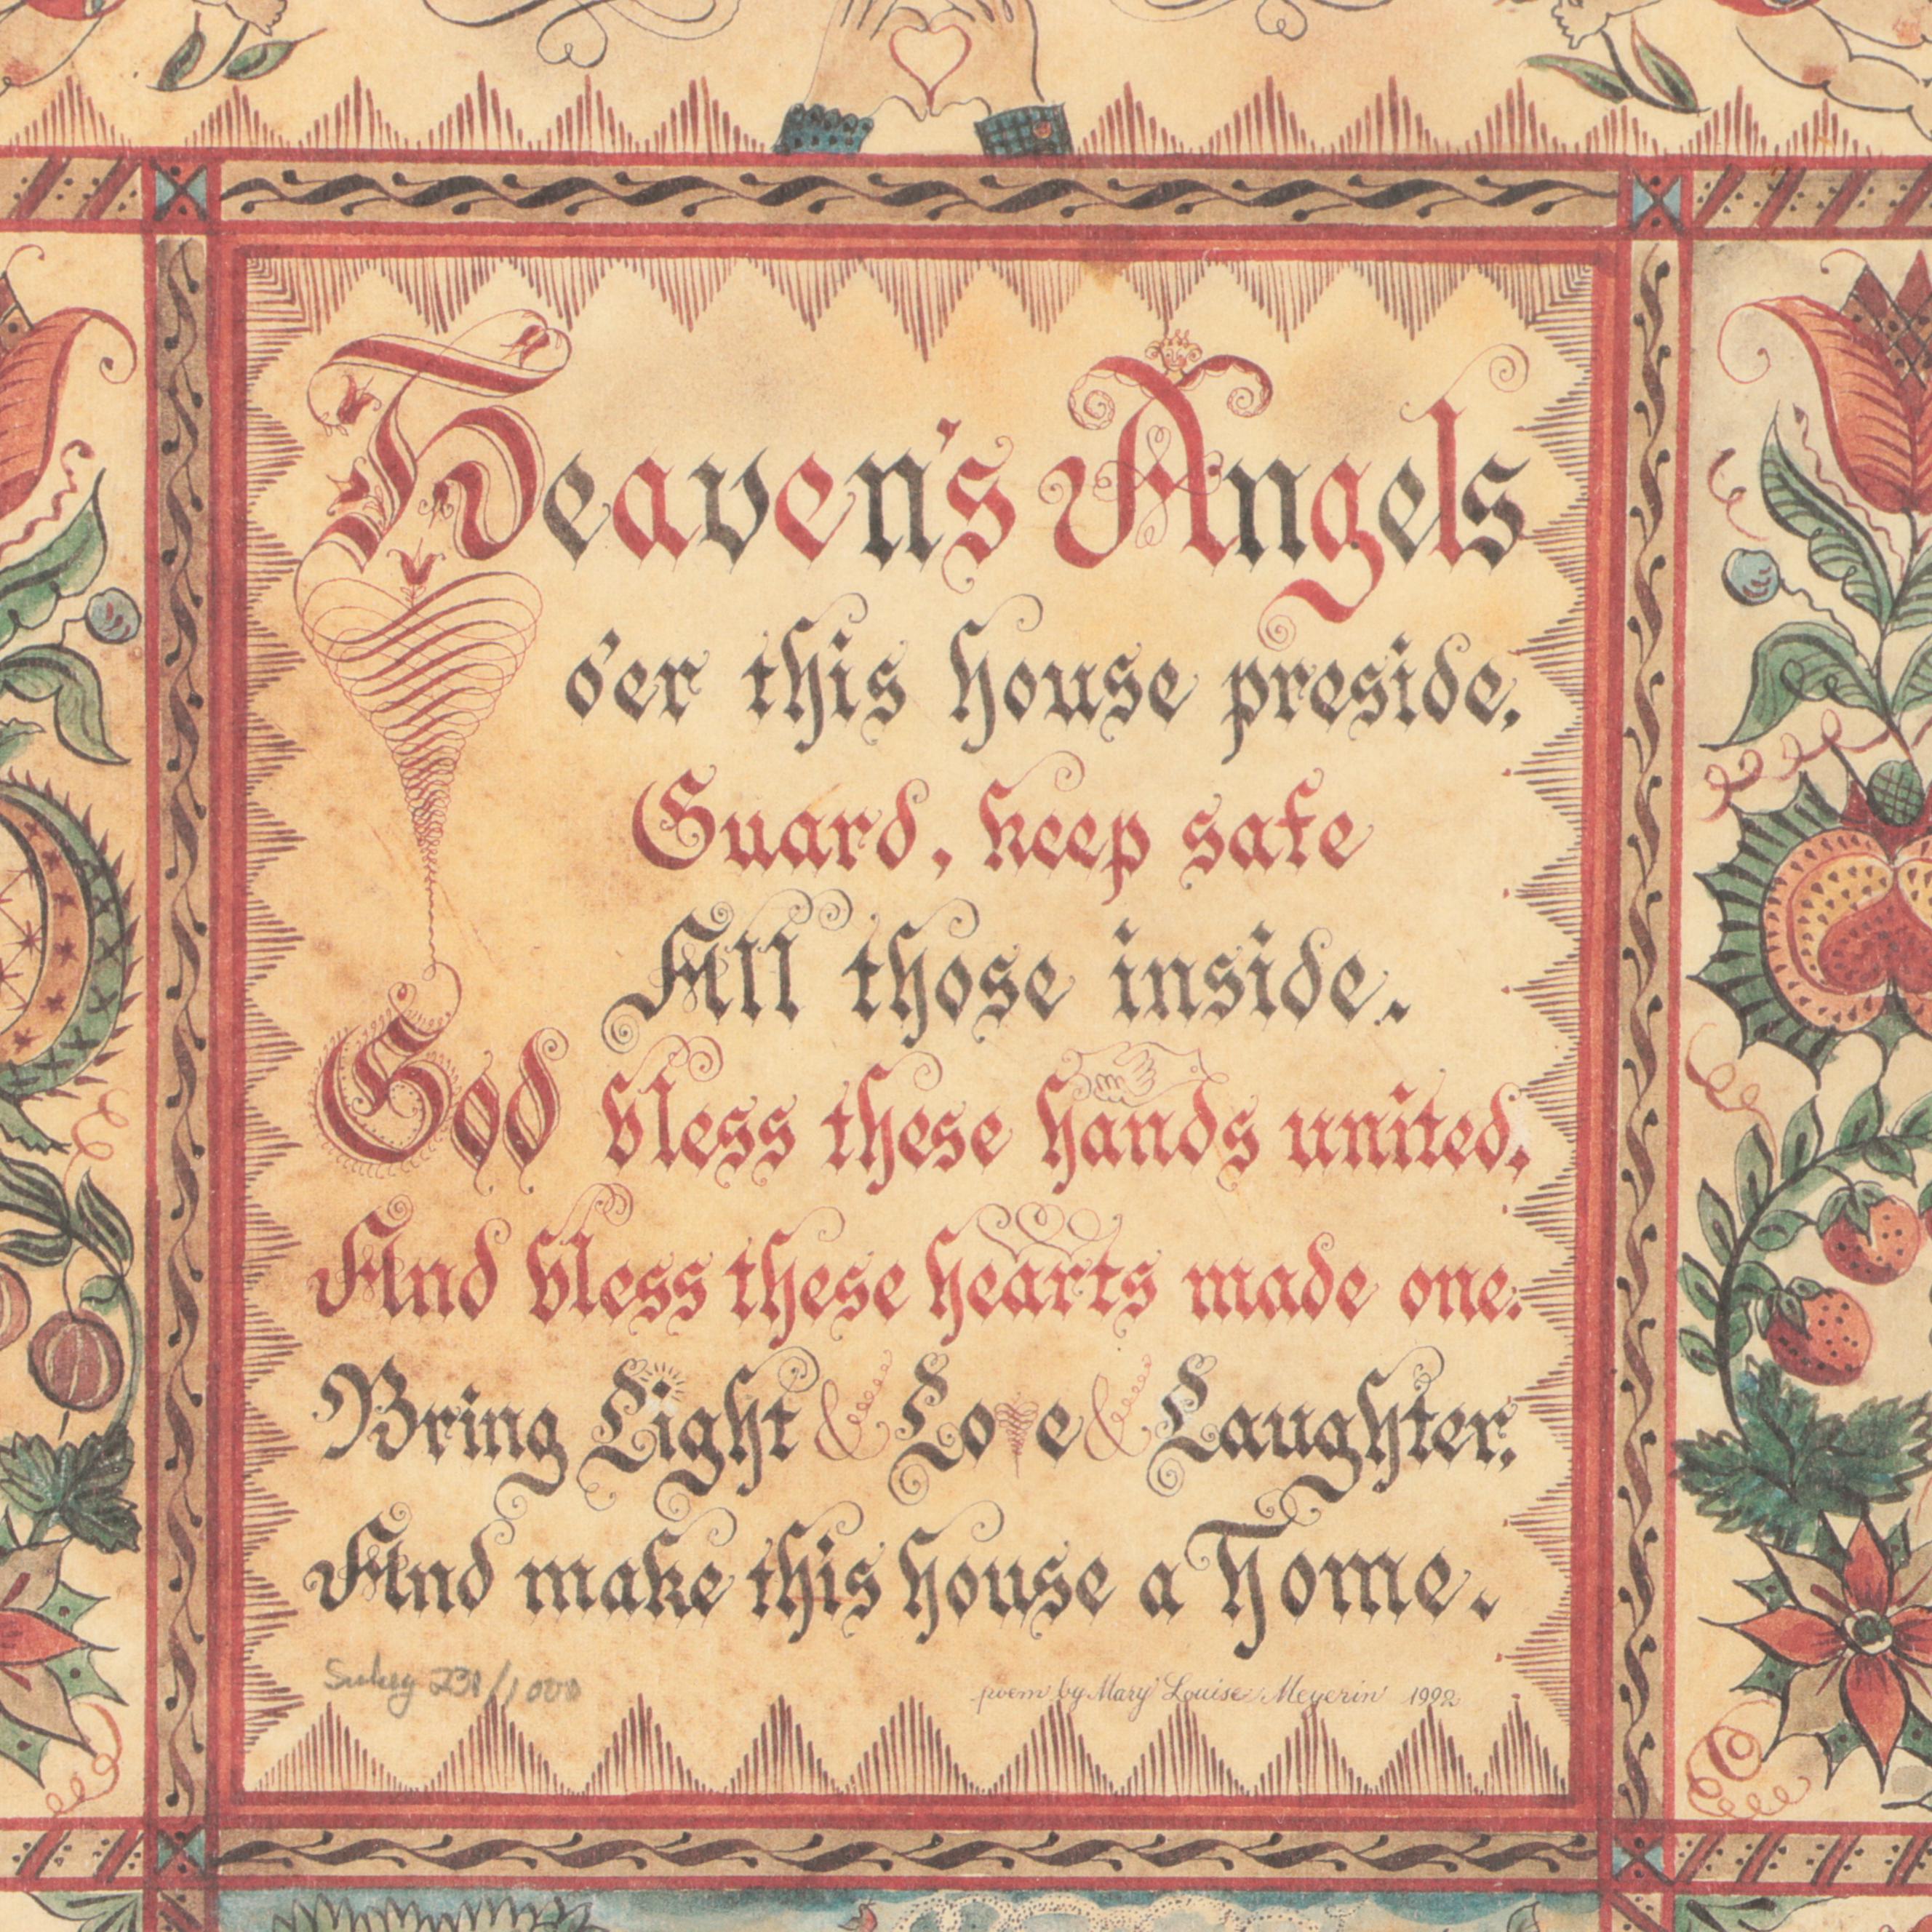 Heaven's Angels
o'er this house preside,
Guard, keep safe
All those inside.
God bless these hands united,
And bless these hearts made one.
Bring Light & Love & Laughter,
And make this house a Home.
Sukey 231/1000
poem by Mary Louise Meyerin 1992